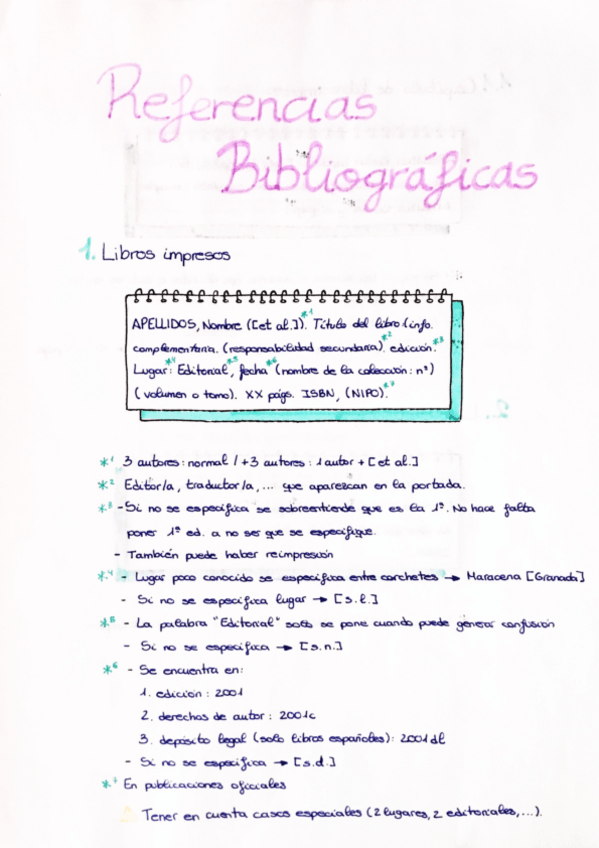 Referencias
Bibliográficas
1. Libros impresos
APELLIDOS, Nombre ([et al.])*¹. Título del libro: info.
complementaria. (responsabilidad secundaria)*². edición*³.
Lugar*⁴: Editorial*⁵, fecha*⁶ (nombre de la colección: nº)
(volumen o tomo). XX págs. ISBN, (NIPO)*⁷.
*¹ 3 autores: normal / +3 autores: 1 autor + [et al.]
*² Editor/a, traductor/a, ... que aparezcan en la portada.
*³ - Si no se especifica se sobreentiende que es la 1ª. No hace falta
poner 1ª ed. a no ser que se especifique.
- También puede haber reimpresión
*⁴ - Lugar poco conocido se especifica entre corchetes → Maracena [Granada]
- Si no se especifica lugar → [s.l.]
*⁵ - La palabra "Editorial" solo se pone cuando puede generar confusión
- Si no se especifica → [s.n.]
*⁶ - Se encuentra en:
1. edición: 2001
2. derechos de autor: 2001c
3. depósito legal (solo libros españoles): 2001dl
- Si no se especifica → [s.d.]
*⁷ En publicaciones oficiales
⚠ Tener en cuenta casos especiales (2 lugares, 2 editoriales,...).